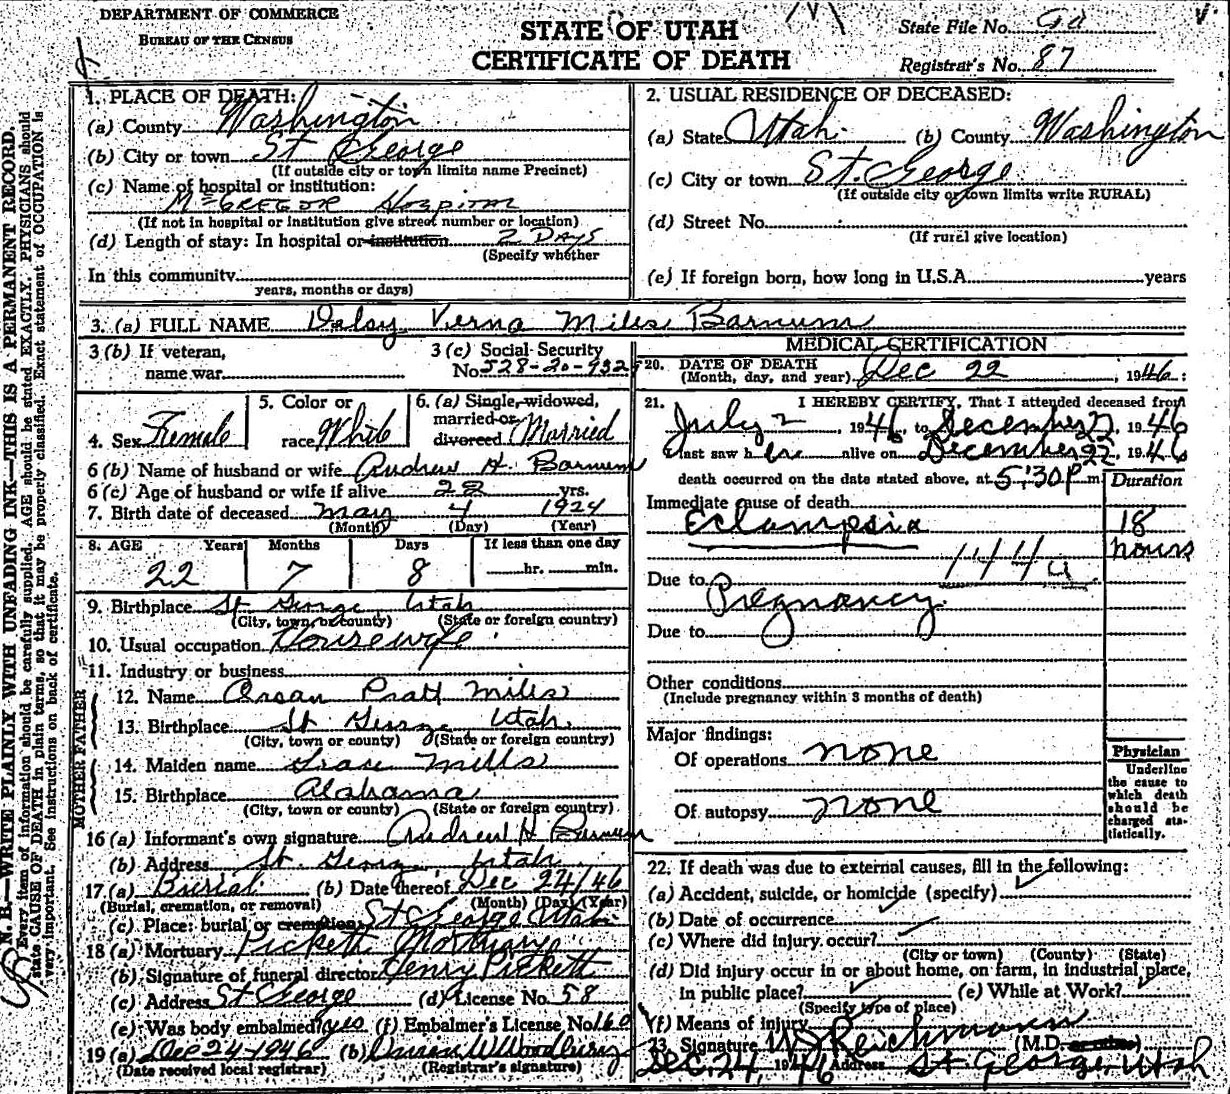 DEPARTMENT OF COMMERCE
BUREAU OF THE CENSUS
STATE OF UTAH
CERTIFICATE OF DEATH
State File No.
Registrar's No. 87
N. B.—WRITE PLAINLY WITH UNFADING INK—THIS IS A PERMANENT RECORD.
Every item of information should be carefully supplied. AGE should be stated EXACTLY. PHYSICIANS should
state CAUSE OF DEATH in plain terms, so that it may be properly classified. Exact statement of OCCUPATION is
very important. See instructions on back of certificate.
1. PLACE OF DEATH:
(a) County Washington
(b) City or town St George
(If outside city or town limits name Precinct)
(c) Name of hospital or institution:
McGREGOR HOSPITAL
(If not in hospital or institution give street number or location)
(d) Length of stay: In hospital or institution 2 DAYS
(Specify whether
In this community
years, months or days)
2. USUAL RESIDENCE OF DECEASED:
(a) State Utah (b) County Washington
(c) City or town St. George
(If outside city or town limits write RURAL)
(d) Street No.
(If rural give location)
(e) If foreign born, how long in U.S.A. years
3. (a) FULL NAME Verna Miles Barnum
3 (b) If veteran,
name war
3 (c) Social Security
No. 528-20-932
4. Sex Female
5. Color or
race White
6. (a) Single, widowed,
married or
divorced Married
6 (b) Name of husband or wife Andrew H. Barnum
6 (c) Age of husband or wife if alive 22 yrs.
7. Birth date of deceased May 4 1924
(Month) (Day) (Year)
8. AGE Years Months Days If less than one day
22 7 8 hr. min.
9. Birthplace St George, Utah
(City, town or county) (State or foreign country)
10. Usual occupation Housewife
11. Industry or business
FATHER
12. Name Orson Pratt Miles
13. Birthplace St George Utah
(City, town or county) (State or foreign country)
MOTHER
14. Maiden name Mills
15. Birthplace Alabama
(City, town or county) (State or foreign country)
16 (a) Informant's own signature Andrew H Barnum
(b) Address St George, Utah
17 (a) Burial (b) Date thereof Dec 24/46
(Burial, cremation, or removal) (Month) (Day) (Year)
(c) Place: burial or cremation St George Utah
18 (a) Mortuary Pickett Mortuary
(b) Signature of funeral director Henry Pickett
(c) Address St George (d) License No. 58
(e) Was body embalmed? yes (f) Embalmer's License No. 160
19 (a) Dec 24-1946 (b) W Woodbury
(Date received local registrar) (Registrar's signature)
MEDICAL CERTIFICATION
20. DATE OF DEATH
(Month, day, and year) Dec 22, 1946
21. I HEREBY CERTIFY, That I attended deceased from
July 2, 1946, to December 22, 1946
I last saw her alive on December 22, 1946
death occurred on the date stated above, at 5:30 P m.
Duration
Immediate cause of death
Eclampsia 18
hours
Due to 144a
Pregnancy
Due to
Other conditions
(Include pregnancy within 3 months of death)
Major findings:
Of operations none
Of autopsy none
Physician
Underline
the cause to
which death
should be
charged sta-
tistically.
22. If death was due to external causes, fill in the following:
(a) Accident, suicide, or homicide (specify)
(b) Date of occurrence
(c) Where did injury occur?
(City or town) (County) (State)
(d) Did injury occur in or about home, on farm, in industrial place,
in public place? (e) While at Work?
(Specify type of place)
(f) Means of injury
23. Signature Reichmann (M.D. or other)
Dec. 24, 1946 Address St George, Utah